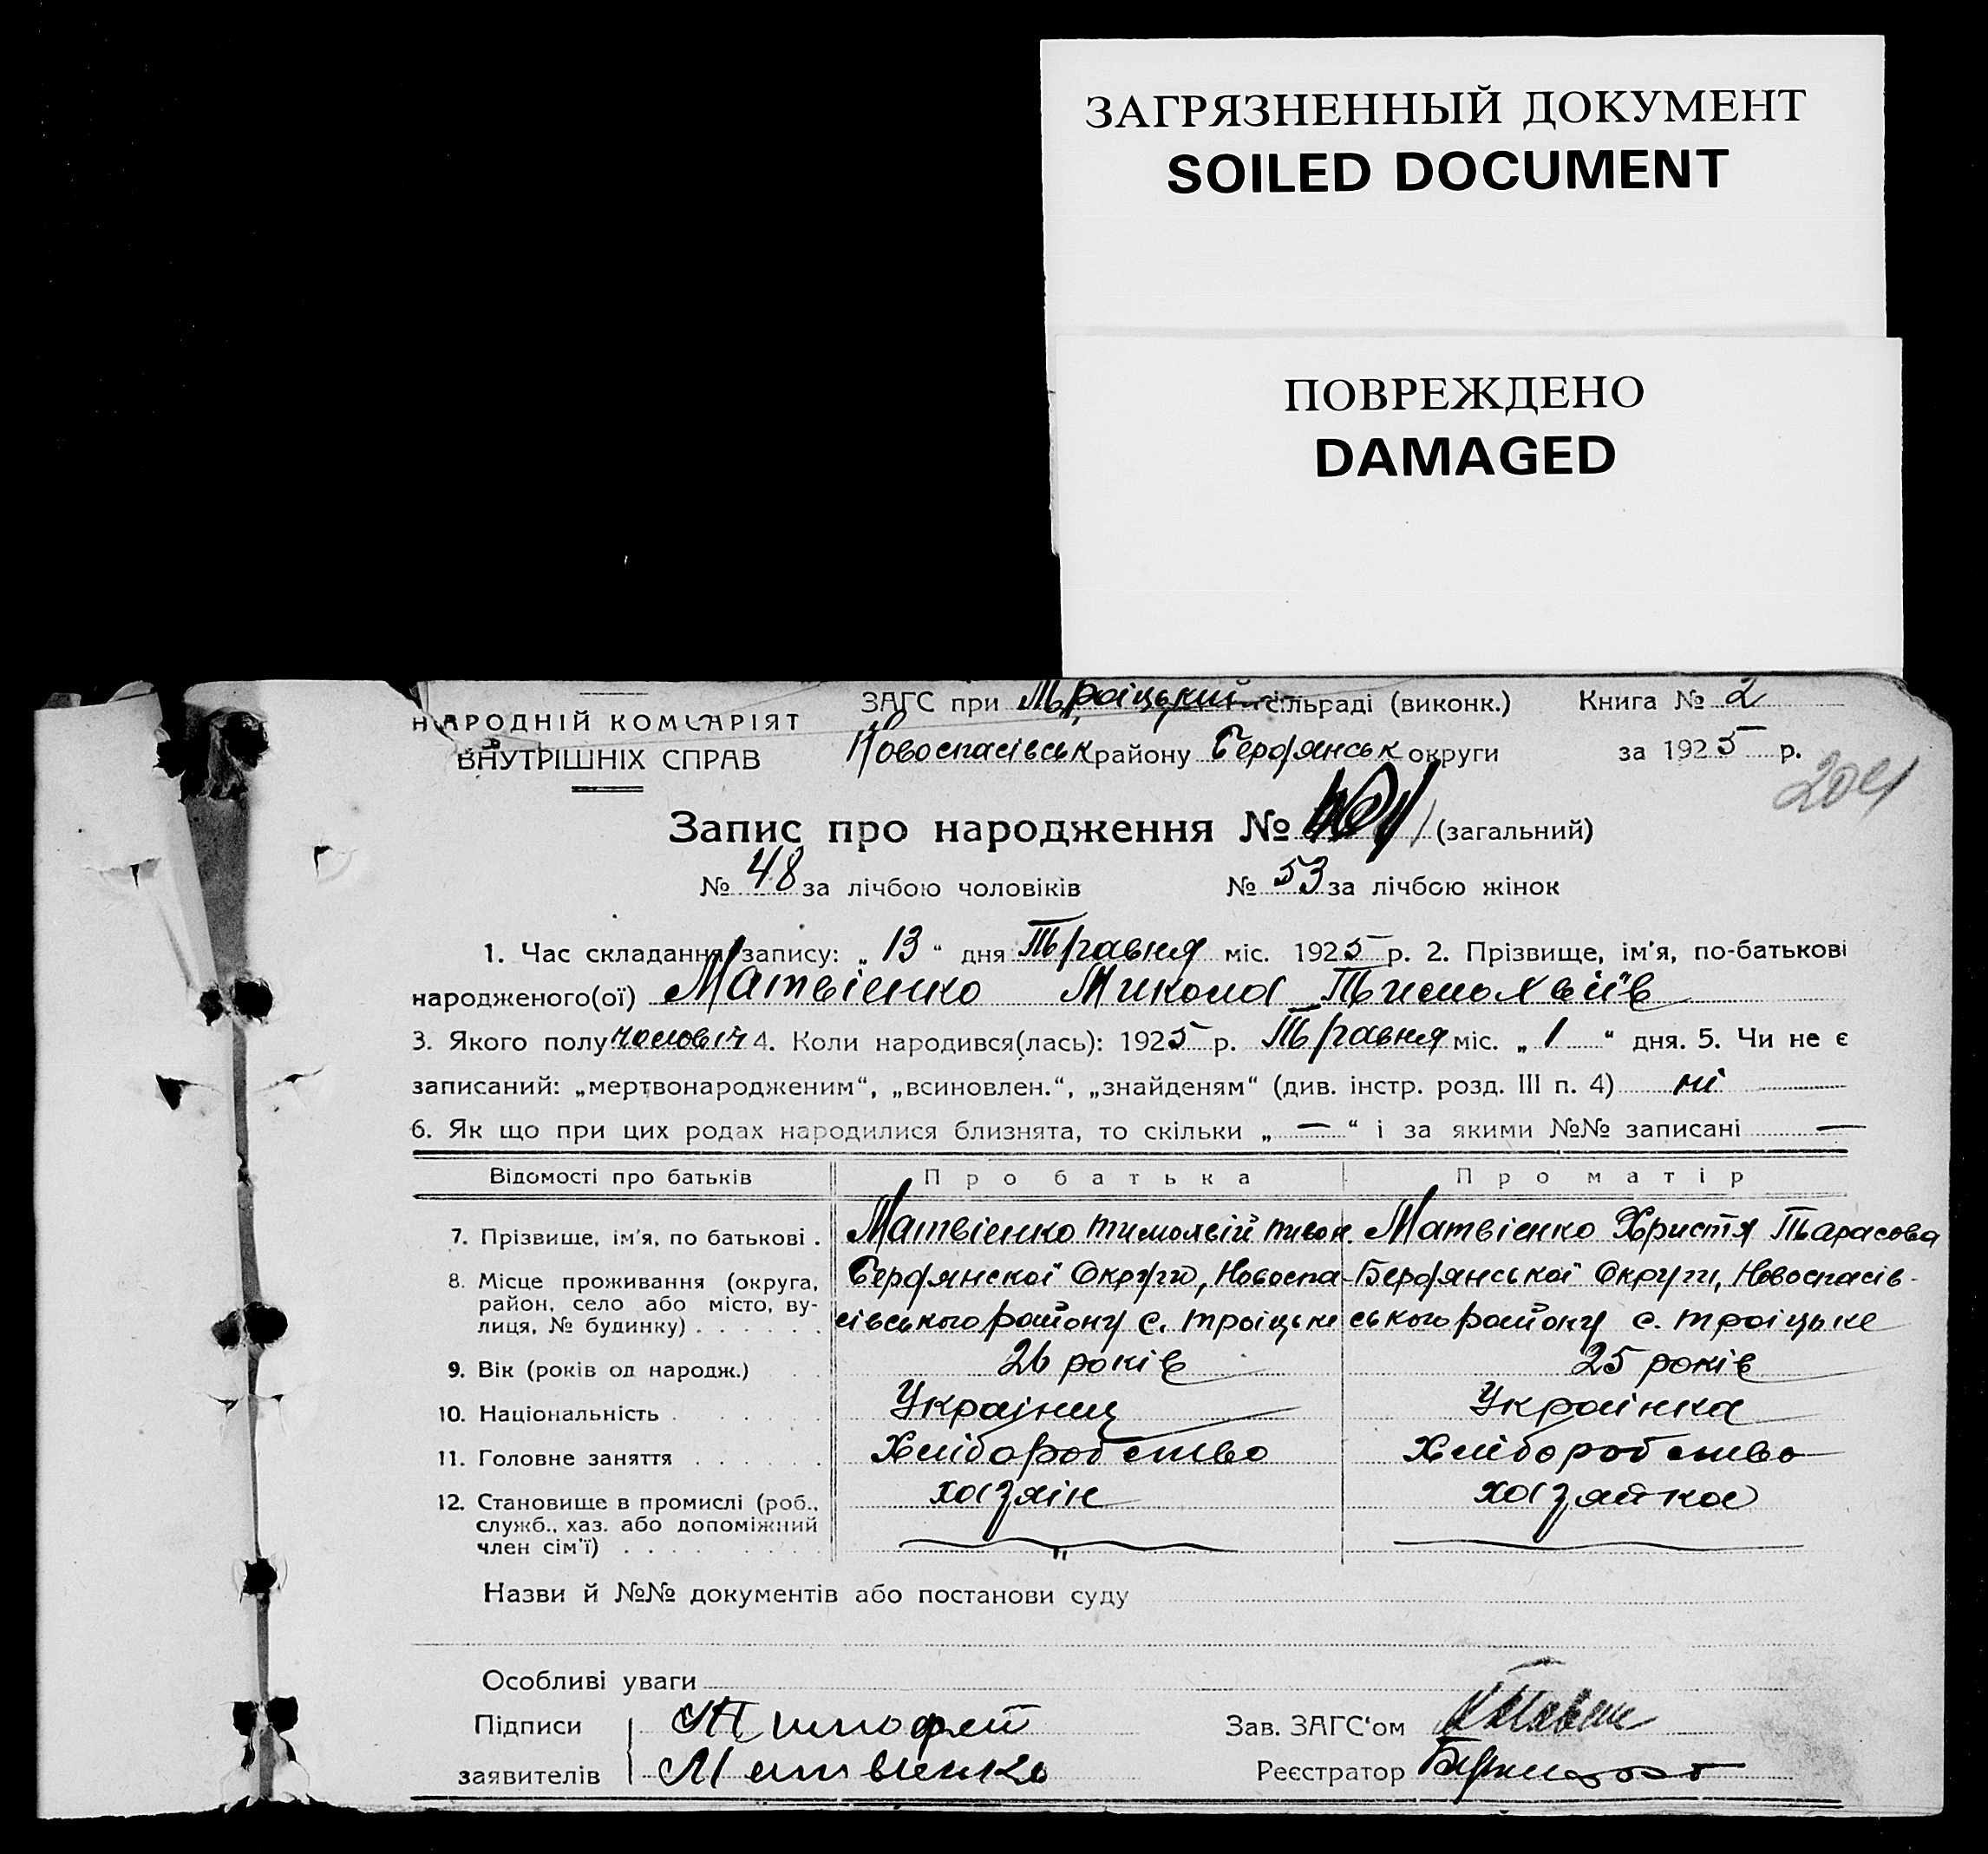 ЗАГРЯЗНЕННЫЙ ДОКУМЕНТ
SOILED DOCUMENT
ПОВРЕЖДЕНО
DAMAGED
НАРОДНІЙ КОМІСАРІЯТ
ВНУТРІШНІХ СПРАВ
ЗАГС при Троіцький сільраді (виконк.) Книга № 2
Новоспасівськ району Бердянськ округи за 1925 р.
204
Запис про народження № 101 (загальний)
№ 48 за лічбою чоловіків № 53 за лічбою жінок
1. Час складання запису: „ 13 “ дня Травня міс. 1925 р. 2. Прізвище, ім'я, по-батькові
народженого(ої) Матвієнко Микола Тимохвіїв
3. Якого полу чоловіч 4. Коли народився(лась): 1925 р. Травня міс. „ 1 “ дня. 5. Чи не є
записаний: „мертвонародженим“, „всиновлен.“, „знайденям“ (див. інстр. розд. III п. 4) ні
6. Як що при цих родах народилися близнята, то скільки „ — “ і за якими №№ записані —
Відомості про батьків Про батька Про матір
7. Прізвище, ім'я, по батькові . Матвієнко Тимохвій Тивон. Матвієнко Христя Тарасова
8. Місце проживання (округа, район, село або місто, вулиця, № будинку) . . . . . . Бердянскої Округи, Новоспа- Бердянської Округи, Новоспасів-
сівського району с. Троіцьке ського району с. Троіцьке
9. Вік (років од народж.) . . 26 років 25 років
10. Національність . . . . . . Українец Українка
11. Головне заняття . . . . . . Хліборобство Хліборобство
12. Становище в промислі (роб., служб., хаз. або допоміжний член сім'ї) . . . . хазяін хазяйка
Назви й №№ документів або постанови суду
Особливі уваги
Підписи Тимофей Зав. ЗАГС'ом
заявителів Матвиенко Реєстратор